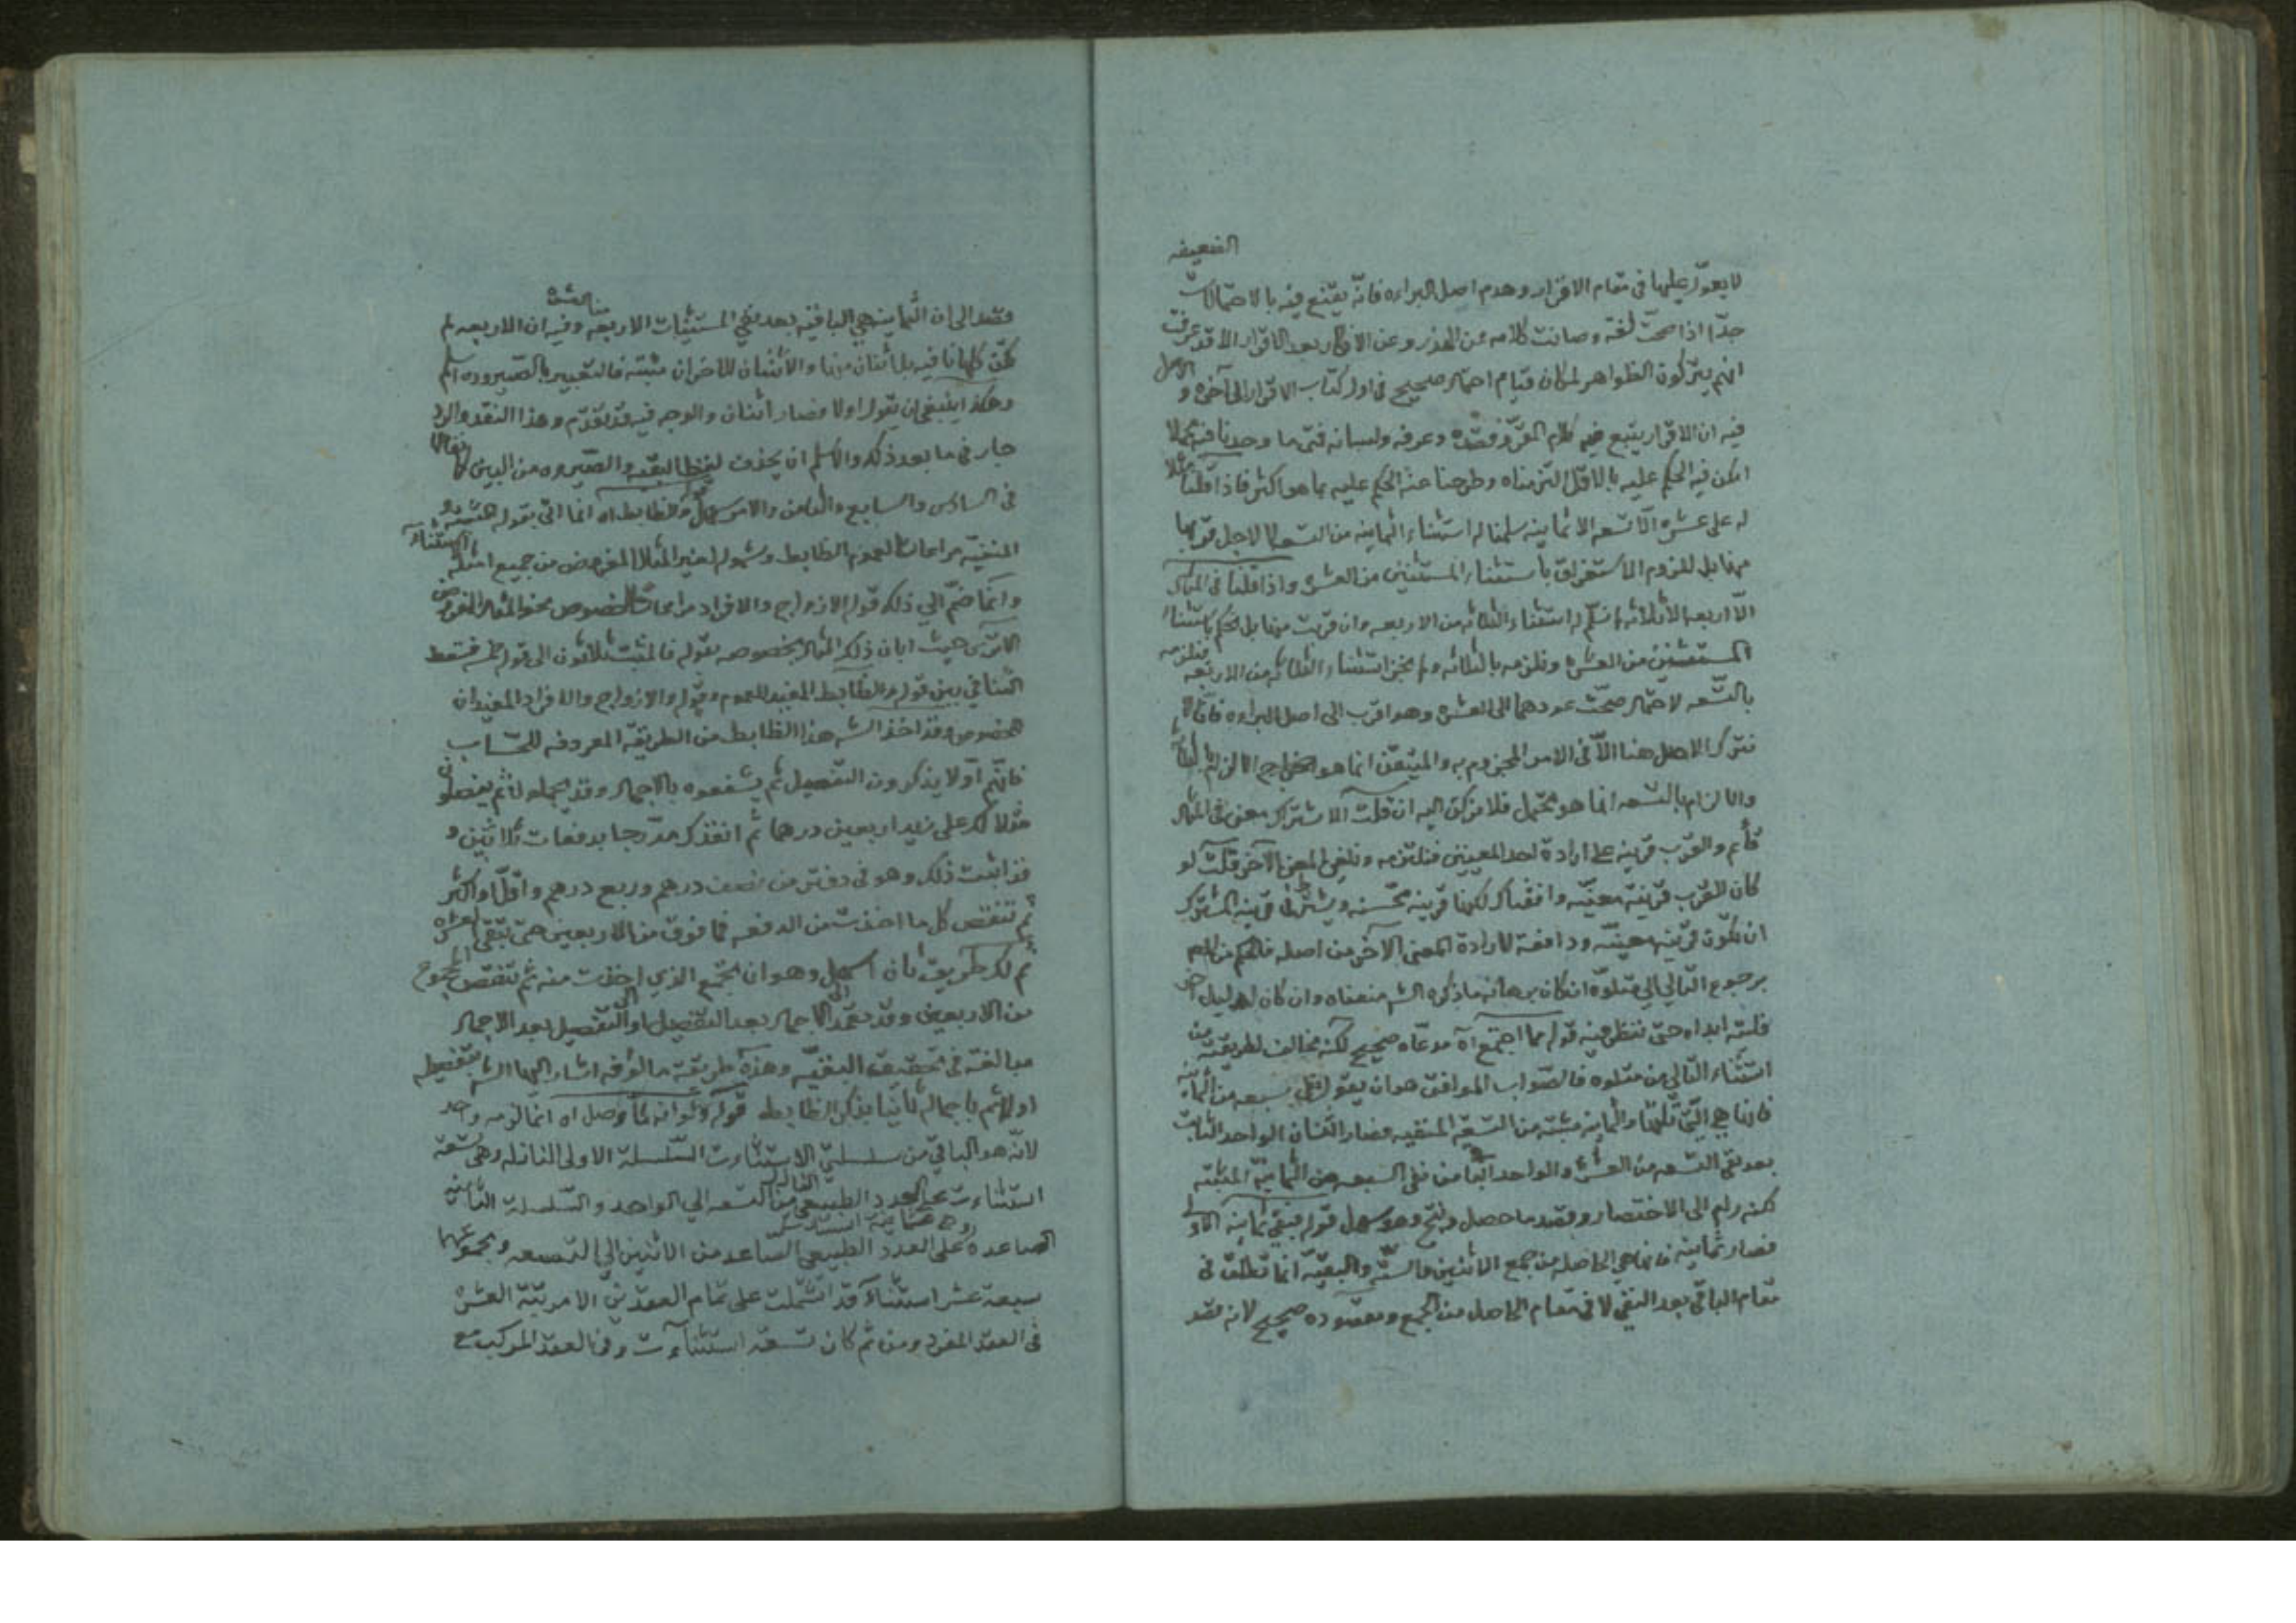 الضعيفه
لا يعوّل عليها في مقام الاقرار وهدم اصل البراءه فانّه يقتنع فيه بالاحتمالات
جدّا اذا صحت لغة وصانت كلامه عن الهذر وعن الانكار بعد الاقرار الا قد عرفت
انهم يتركون الظواهر لمكان قيام احتمال صحيح في اول كتاب الاقرار الى آخره و الاصل
فيه ان الاقرار يتبع فيه كلام المقرّ وقصده وعرفه ولسانه فمتى ما وجدنا فيه مجملا
امكن فيه الحكم عليه بالاقل التزمناه وطرحنا عنه الحكم عليه بما هو اكثر فاذا قلنا مثلا
له على عشره الّا تسعه الا ثمانيه سلمنا له استثناء الثمانيه من التسعه لا لاجل قربها
بل للزوم الاستغراق باستثناء المستثنيين من العشره واذا قلنا في المثال
الّا اربعه الا ثلاثه لم نسلّم له استثناء الثلاثه من الاربعه وان قربت منها بل نحكم باستثناء
المستثنيين من العشره ونلزمه بالثلاثه ولم نجز استثناء الثلاثه من الاربعه فنلزمه
بالتّسعه لاحتمال صحّت عودهما الى العشره وهو اقرب الى اصل البراءه فانّا لا
نترك الاصل هنا الّا في الامر المجزوم به والمتيقّن انما هو
والالزام بالتسعه انما هو محتمل فلا نركن اليه ان قلت الاشتراك معنى في المثال
قائم والقرب قرينه على ارادة احد المعنيين فنلتزمه ونلغي المعنى الآخر قلت لو
كان للقرب قرينة معيّنه وافقناك لكنها قرينه محسّنه ويشترط في قرينه المشترك
ان تكون قرينه معيّنه ودافعة لارادة المعنى الآخر من اصله فالحكم منهم
برجوع التّالي الى متلوّه ان كان برهانه ما ذكره الشه منعناه وان كان لدليل اخر
فلسنه ابداه حتى ننظر فيه قوله مما اجتمع اه مدعاه صحيح لكنّه مخالف لطريقته من
استثناء التّالي من متلوه فالصّواب الموافق هو ان يقول سبعه من الثمانيه
فانها هي الّتي تليها والثمانيه مثبته من التسعه المنفيه فصار اثنان الواحد الثابت
بعد نفي التسعه من العشره والواحد الثابت من نفي السبعه من الثمانيه المثبته
لكنه رام الى الاختصار وقصد ما حصل ونتج وهو سهل قوله فبقي ثمانيه الاولى
فصار ثمانيه فانما هي الحاصله من جمع الاثنين والستّه والبقيّه انما تطلق في
مقام الباقي بعد النفي لا في مقام الحاصل من الجمع ومقصوده صحيح لانه قصد
قصد الى ان الثمانيه هي الباقيه بعد نفي المستثنيات الاربعه من العشره وفيه ان الاربعه لم
تكن كلها نافيه بل اثنان منها والاثنان الاخران مثبته فالتعبير بالصيروره اسلم
وهكذا ينبغي ان يقول اولا فصار اثنان والوجه فيه قد تقدّم وهذا النقد والرد
جار في ما بعد ذكره والاسلم ان يحذف لفظ البقيه والصّيروره من البين
في السادس والسابع والثامن والامر سهل قوله والضابط اه انما اتى بقوله
المنفيّه مراعاة لعموم الضابط وشموله لغير المثال المفروض من جميع امثله الاستثناء
وانما ضمّ الى ذلك قوله الازواج والافراد مراعاة لخصوص نحو المثال المفروض
الا ترى حيث ابان ذلك المثال بخصوصه بقوله فالمثبت ثلاثون الى قوله خمسه فسقط
التنافي بين قوله الضابط المفيد للعموم وقوله والازواج والافراد المفيدان
للخصوص وقد اخذ الشه هذا الضابط من الطريقه المعروفه للحسّاب
فانّهم اوّلا يذكرون التفصيل ثم يشفعوه بالاجمال وقد يجملون ثم يفصلون
مثلا لك على زيد اربعين درهما ثم انقذك مدّرجا بدفعات ثلاثين و
قد اثبت ذلك وهو في دفتر من نصف درهم وربع درهم واقلّ او اكثر
ثم تنقص كل ما اخذت من الدفعه فما فوق من الاربعين حتى تبقى العشره
ثم لك طريق ثان اسهل وهو ان تجمع الذي اخذت منه ثم تنقص المجموع
من الاربعين وقد يعمد الى الاجمال بعد التفصيل او الى التفصيل بعد الاجمال
مبالغة في تحقيق البقيّه وهذه طريقة مالوفه اشار اليها الشه بتفصيله
اولا ثم باجماله ثانيا بذكر الضابطه قوله ولو انه لمّا وصل اه انما لزمه واحد
لانّه هو الباقي من سلسلتي الاستثناءات السّلسلة الاولى النازله وهي تسعة
استثناءات على العدد الطبيعي النازل من التسعه الى الواحد والسّلسله الثانيه
الصاعده وهي ثمانيه استثناءات على العدد الطبيعي الصّاعد من الاثنين الى التسعه ومجموعهما
سبعة عشر استثناء قد اشتملت على تمام العقدين الا مرتبة العشره
في العقد المفرد ومن ثم كان تسعة استثناءات وفي العقد المركب مع